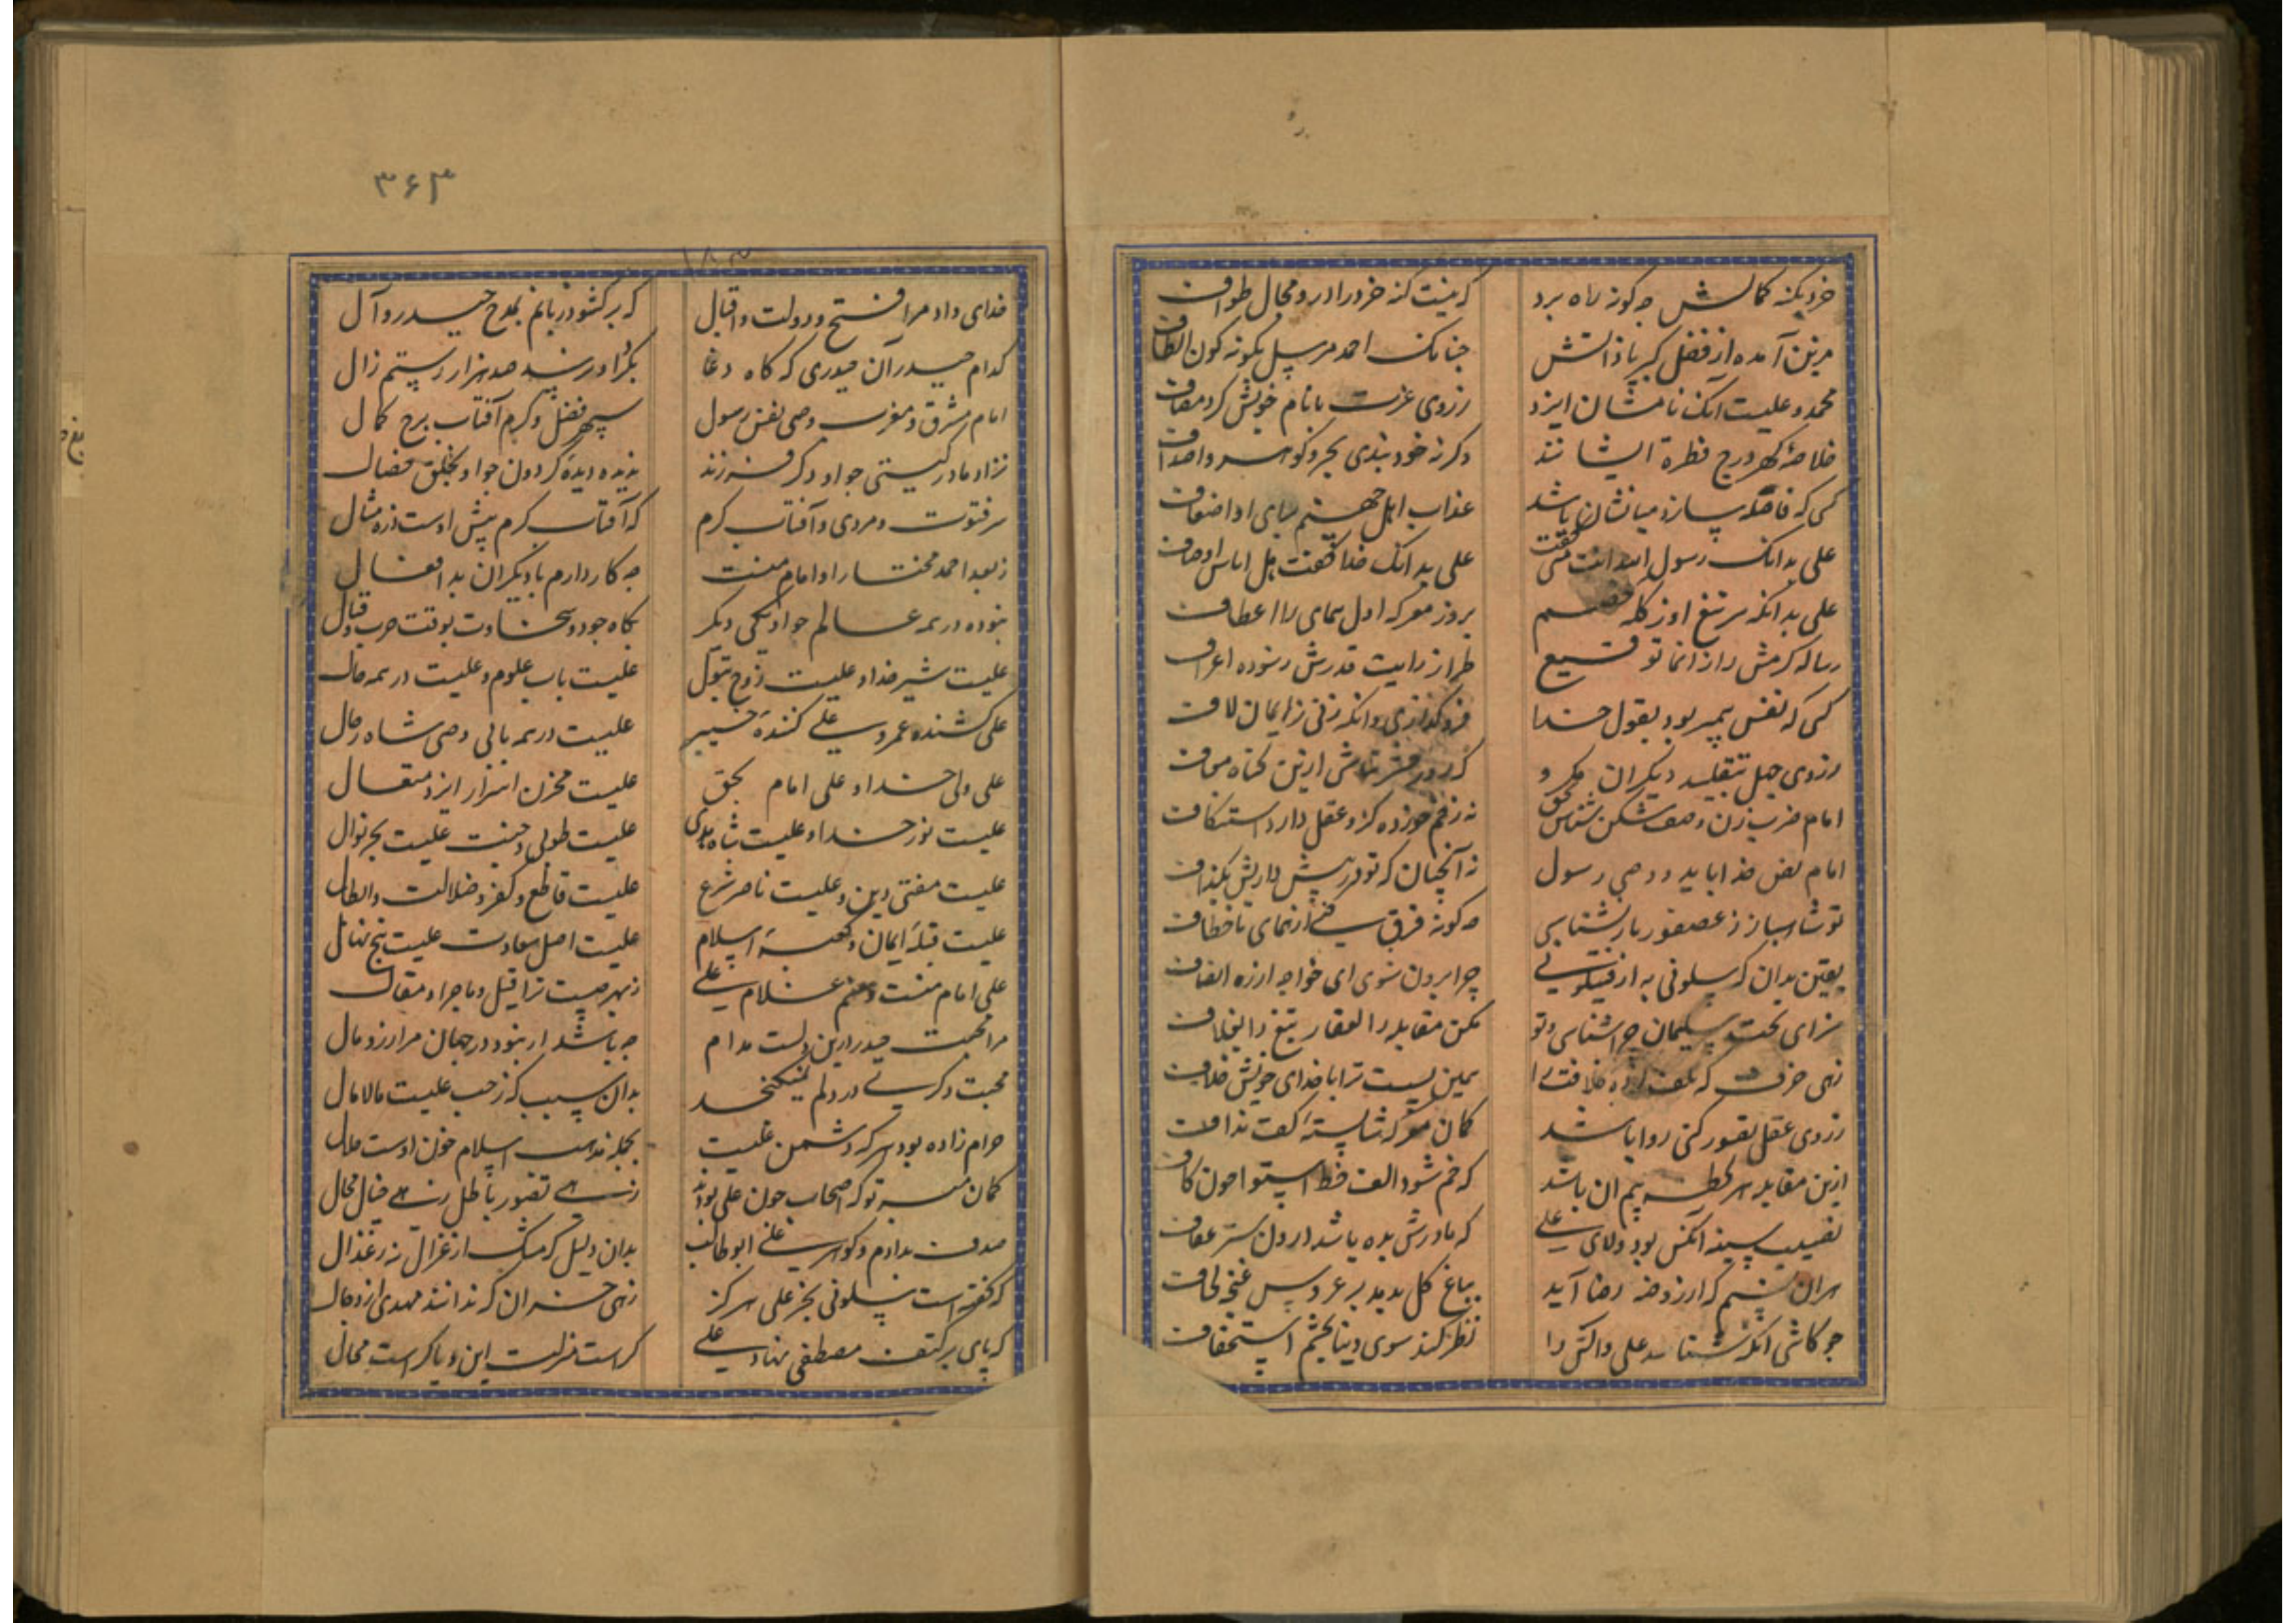 خرد بکنه کمالش چه کونه راه برد که نیست کنه خرد را درو مجال طواف
مزین آمده از فضل کبریا ذاتش چنانک احمد مرسل بکونه کون الطاف
محمد و علیست آنک نامشان ایزد ز روی عزت با نام خویش کرد مضاف
خلاصه کهر درج فطره ایشانند وکرنه خود نبدی بحر و کوهر و اصداف
کسی که فاصله سازد میانشان باشد عذاب اهل جهنم برای او اضعاف
علی بدانک رسول الله انت منی کفت علی بدانک خدا کفت هل اتاش اوصاف
علی بدانکه سر تیغ او ز کله خصم بروز معرکه اول سمای را اعطاف
رساله کرمش راز انما توقیع طراز رایت قدرش ز سوره اعراف
کسی که نفس پیمبر بود بقول خدا فروکذاری وانکه زنی ز ایمان لاف
ز روی جهل بتقلید دیکران مکرو که روز حشر نباشی ازین کناه معاف
امام ضرب زن و صف شکن شناس بحق نه زخم خورده کزو عقل دارد استنکاف
امام نص خدا باید و وصی رسول نه آنچنان که تو در پیش داریش بکذاف
تو شاهباز ز عصفور باز نشناسی چه کونه فرق کنی از همای تا خطاف
یقین بدان که سلونی به از اقیلونی چرا برون شوی ای خواجه از ره انصاف
سزای تخت سلیمان چه اشناسی و تو مکن مقابله ذالفقار تیغ ذالغلاف
زهی خرف که بکف کرده خلافت را همین بسیست ترا با خدای خویش خلاف
ز روی عقل تصور کنی روا باشد کمان معرکه شایسته کف نداف
ازین مقابله هر لحظه بیم ان باشد که خم شود الف خط استوا چون کاف
نصیب سینه آنکس بود ولای علی که مادرش بده باشد درون ستر عفاف
هران نسیم که از روضه رضا آید بباغ کل بدمد بر عروس غنچه لحاف
چو کاشی انکه شناسد علی و آلش را نظر کند سوی دنیا بچشم استخفاف
۳۶۳
۱۸۳
خدای داد مرا فتح و دولت و اقبال که برکشود زبانم بمدح حیدر و آل
کدام حیدر آن حیدری که کاه دغا بکرد او نرسد صد هزار رستم زال
امام مشرق و مغرب وصی نفس رسول سپهر فضل و کرم آفتاب برج کمال
نزاد مادر کیتی چو او دکر فرزند ندیده دیده کردون چو او بخلق خصال
سر فتوت و مردی و آفتاب کرم که آفتاب کرم پیش اوست ذره مثال
ز بعد احمد مختار او امام منست چه کار دارم با دیکران بد افعال
نبوده در همه عالم چو او یکی دیکر بکاه جود و سخاوت بوقت حرب و قتال
علیست شیر خدا و علیست زوج بتول علیست باب علوم و علیست در همه حال
علی کشنده عمرو علی کننده خیبر علیست در همه بابی وصی شاه رجال
علی ولی خدا و علی امام بحق علیست مخزن اسرار ایزد متعال
علیست نور خدا و علیست شاه هدی علیست طوبی جنت علیست بحر نوال
علیست مفتی دین و علیست ناصر شرع علیست قاطع و کفر و ضلالت و ابطال
علیست قبله ایمان و کعبه اسلام علیست اصل سعادت علیست بنج نهال
علی امام منست و منم غلام علی ز بهر چیست ترا قیل و ماجرا و مقال
مرا محبت حیدر درین دلست مدام چه باشد ار نبود در جهان مرا زر و مال
محبت دکری در دلم نمیکنجد بدان سبب که ز حب علیست مالامال
حرام زاده بود هر که دشمن علیست بجمله مذهب اسلام خون اوست حلال
کمان مبر تو که اصحاب چون علی بودند زهی تصور باطل زهی خیال محال
صدف بدادم و کوهر علی ابوطالب بدان دلیل که مشک از غزال نه ز غذال
که کفته است سلونی بجز علی هرکز زهی خسران که ندانند مهدی از دجال
که پای بر کتف مصطفی نهاد علی کراست منزلت این و یا کراست مجال